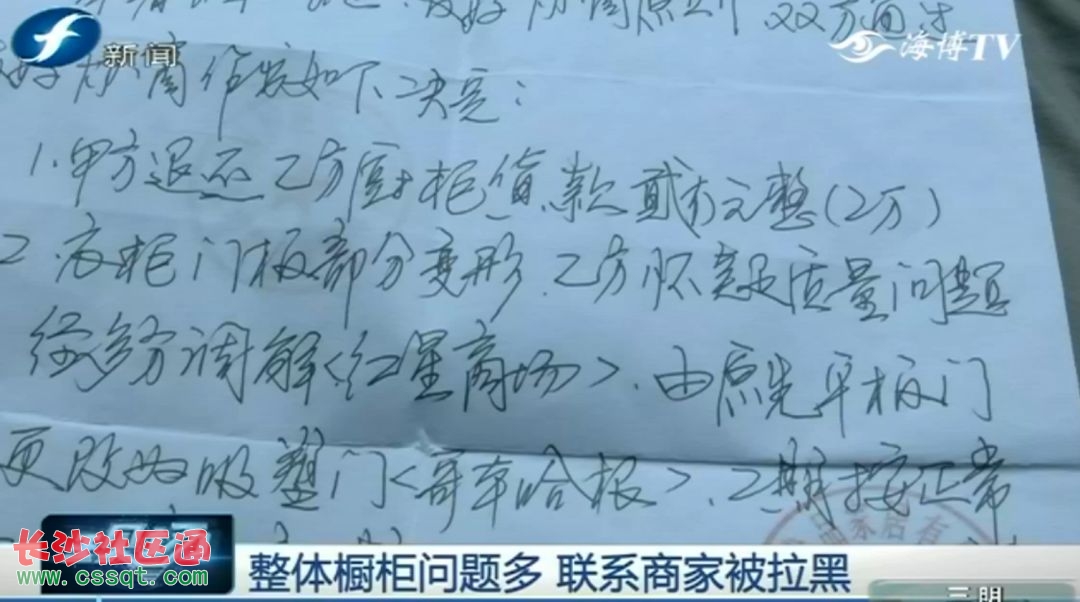 新闻
海博TV
友好协商原则 双方通过
友好协商作出如下决定：
1.甲方退还乙方橱柜货款贰万元整(2万)
2.衣柜门板部分变形、乙方怀疑质量问题
经多方调解<红星商场>、由原先平板门
更改为吸塑门<哥本哈根>、工期按正常
整体橱柜问题多 联系商家被拉黑
三明
长沙社区通
www.cssqt.com